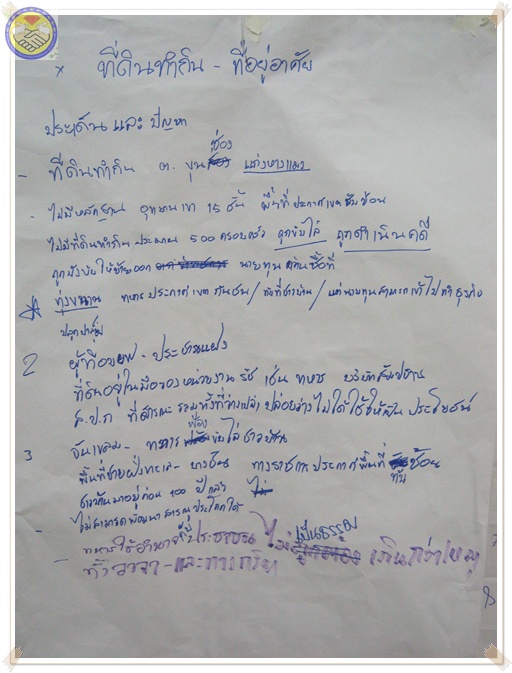 × ที่ดินทำกิน - ที่อยู่อาศัย
ประเด็น และ ปัญหา
- ที่ดินทำกิน ต. ขุนซ่อง แก่งหางแมว
- ไม่มีหลักฐาน อุทยานเขา 15 ชั้น พื้นที่ ประกาศเขตซับซ้อน
ไม่มีที่ดินทำกิน ประมาณ 500 ครอบครัว ถูกขับไล่ ถูกดำเนินคดี
ถูกบังคับให้ย้ายออก นายทุน กว้านซื้อที่
ทุ่งขนาน ทหารประกาศเขต กันชน / ทับที่ชาวบ้าน / แต่นายทุนสามารถเข้าไปทำธุรกิจ
ปลูกปาล์ม
2 ผู้ที่อพยพ - ประชาชนแฝง
ที่ดินอยู่ในมือของหน่วยงานรัฐ เช่น ทหาร บริษัทสัมปทาน
ส.ป.ก ที่สาธารณะ รวมทั้งที่ว่างเปล่า ปล่อยว่างไม่ได้ใช้ให้เป็นประโยชน์
3 จันเขลม - ทหาร ฟ้องขับไล่ชาวบ้าน
พื้นที่ชายฝั่งทะเล - บางชัน ทางราชการ ประกาศพื้นที่ทับซ้อน
ชาวบ้านมาอยู่ก่อน 100 ปี กว่า
- ไม่สามารถพัฒนา สาธารณูปโภคได้
- ทหารใช้อำนาจขู่ประชาชน ไม่เป็นธรรม เกินกว่าเหตุ
- ทั้งวาจา - และการกระทำ